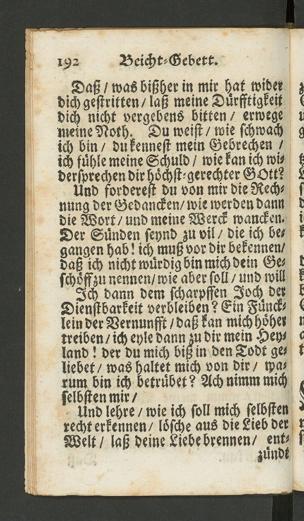 192 Beicht-Gebett.
Daß / was bißher in mir hat wider
dich gestritten / laß meine Dürfftigkeit
dich nicht vergebens bitten / erwege
meine Noth. Du weist / wie schwach
ich bin / du kennest mein Gebrechen /
ich fühle meine Schuld / wie kan ich wi-
dersprechen dir höchst-gerechter GOtt?
Und forderest du von mir die Rech-
nung der Gedancken / wie werden dann
die Wort / und meine Werck wancken.
Der Sünden seynd zu vil / die ich be-
gangen hab! ich muß vor dir bekennen /
daß ich nicht würdig bin mich dein Ge-
schöff zu nennen / wie aber soll / und will
Ich dann dem scharpffen Joch der
Dienstbarkeit verbleiben? Ein Fünck-
lein der Vernunfft / daß kan mich höher
treiben / ich eyle dann zu dir mein Hey-
land! der du mich biß in den Todt ge-
liebet / was haltet mich von dir / wa-
rum bin ich betrübet? Ach nimm mich
selbsten mir /
Und lehre / wie ich soll mich selbsten
recht erkennen / lösche aus die Lieb der
Welt / laß deine Liebe brennen / ent-
zündt